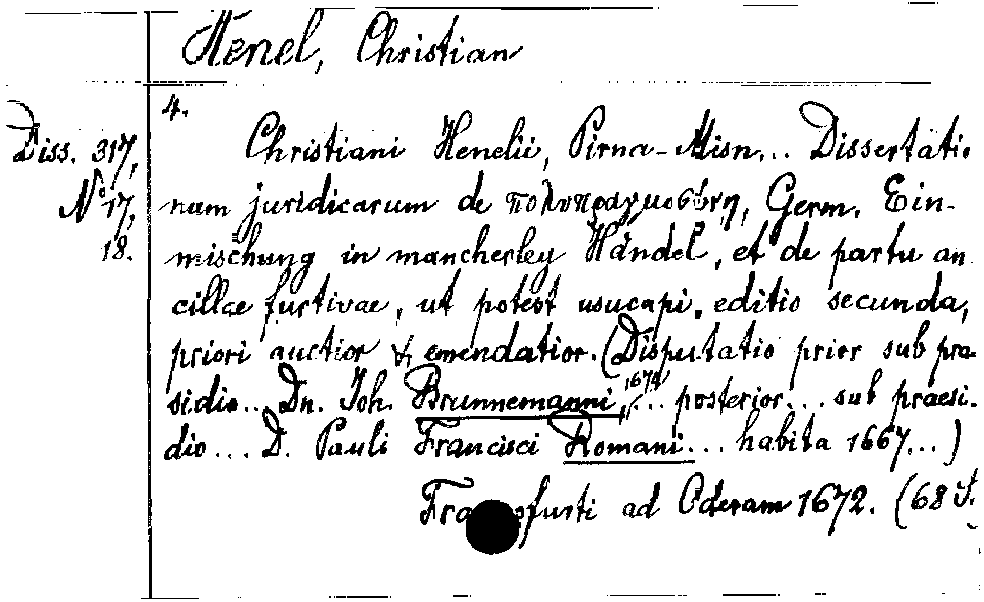 Henel, Christian
4.
Diss. 317,
No 17,
18.
Christiani Henelii, Pirna-Misn... Dissertatio
num juridicarum de πολυπραγμοσύνη, Germ. Ein-
mischung in mancherley Händel, et de partu an
cillae furtivae, ut potest usucapi, editio secunda,
priori auctior & emendatior. (Disputatio prior sub prae
sidio... Dn. Joh. Brunnemanni, ... posterior... sub praesi-
dio... D. Pauli Francisci Romani... habita 1667...)
ad Oderam 1672. (68 S.